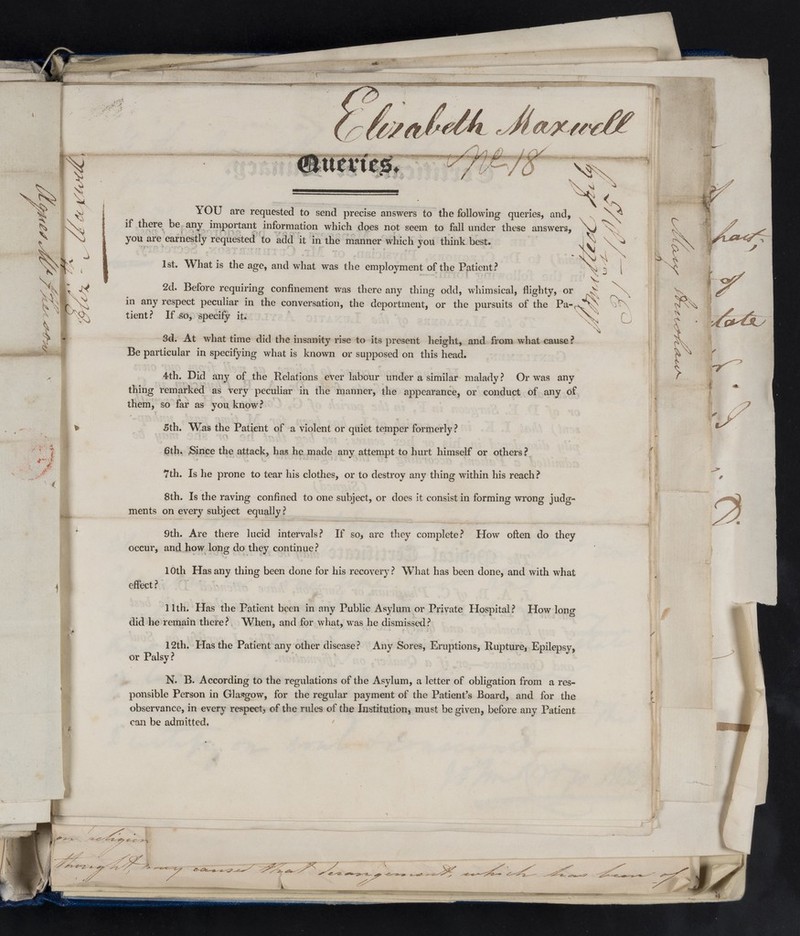 Elizabeth Maxwell
No 18
Queries.
YOU are requested to send precise answers to the following queries, and,
if there be any important information which does not seem to fall under these answers,
you are earnestly requested to add it in the manner which you think best.
1st. What is the age, and what was the employment of the Patient?
2d. Before requiring confinement was there any thing odd, whimsical, flighty, or
in any respect peculiar in the conversation, the deportment, or the pursuits of the Pa-
tient? If so, specify it.
3d. At what time did the insanity rise to its present height, and from what cause?
Be particular in specifying what is known or supposed on this head.
4th. Did any of the Relations ever labour under a similar malady? Or was any
thing remarked as very peculiar in the manner, the appearance, or conduct of any of
them, so far as you know?
5th. Was the Patient of a violent or quiet temper formerly?
6th. Since the attack, has he made any attempt to hurt himself or others?
7th. Is he prone to tear his clothes, or to destroy any thing within his reach?
8th. Is the raving confined to one subject, or does it consist in forming wrong judg-
ments on every subject equally?
9th. Are there lucid intervals? If so, are they complete? How often do they
occur, and how long do they continue?
10th Has any thing been done for his recovery? What has been done, and with what
effect?
11th. Has the Patient been in any Public Asylum or Private Hospital? How long
did he remain there? When, and for what, was he dismissed?
12th. Has the Patient any other disease? Any Sores, Eruptions, Rupture, Epilepsy,
or Palsy?
N. B. According to the regulations of the Asylum, a letter of obligation from a res-
ponsible Person in Glasgow, for the regular payment of the Patient's Board, and for the
observance, in every respect, of the rules of the Institution, must be given, before any Patient
can be admitted.
Admitted July
Agnes
Eliz. Maxwell
Mary
of
religion
thought may caused that derangement, which has been of